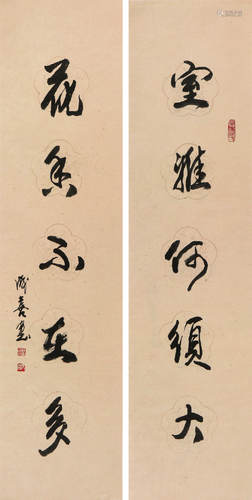 室雅何須大
花香不在多